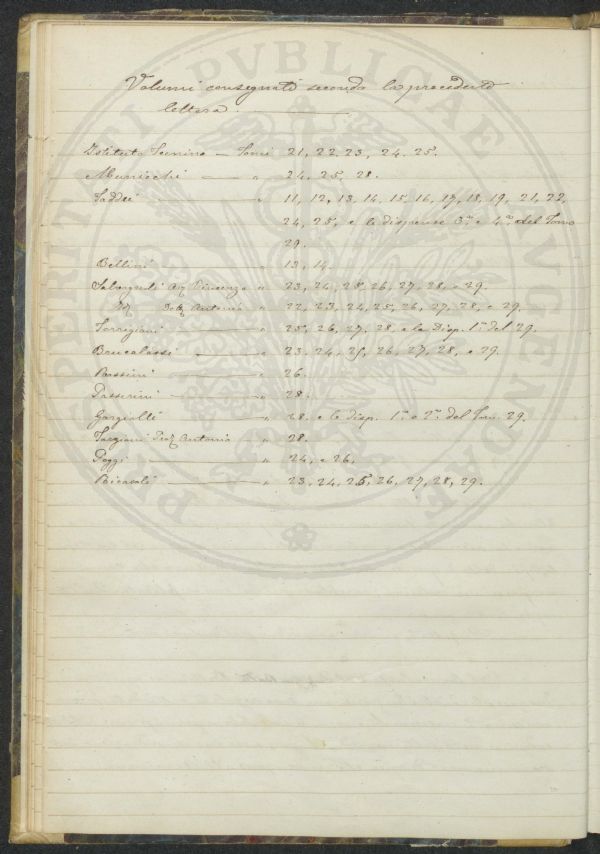 Volumi consegnati secondo la precedente
lettera.
Istituto Tecnico — Tomi 21, 22, 23, 24. 25.
— „ 24, 25, 28.
Taddei — „ 11, 12, 13, 14, 15, 16, 17, 18, 19, 21, 22,
24, 25, e le dispense 3ª e 4ª del Tomo
29.
Bellini „ 13, 14.
Vincenzo „ 23, 24, 25, 26, 27, 28, e 29.
Antonio „ 22, 23, 24, 25, 26, 27, 28, e 29.
Torrigiani — „ 25, 26, 27, 28, e la Disp. 1ª del 29.
Brucalassi — „ 23, 24, 25, 26, 27, 28, e 29.
— „ 26.
Passerini — „ 28.
Gargiolli — „ 28. e le disp. 1ª e 2ª del Tom. 29.
Targioni Antonio — „ 28.
Poggi — „ 24, e 26,
Ricasoli — „ 23, 24, 25, 26, 27, 28, 29.
PROSPERITATI PVBLICAE